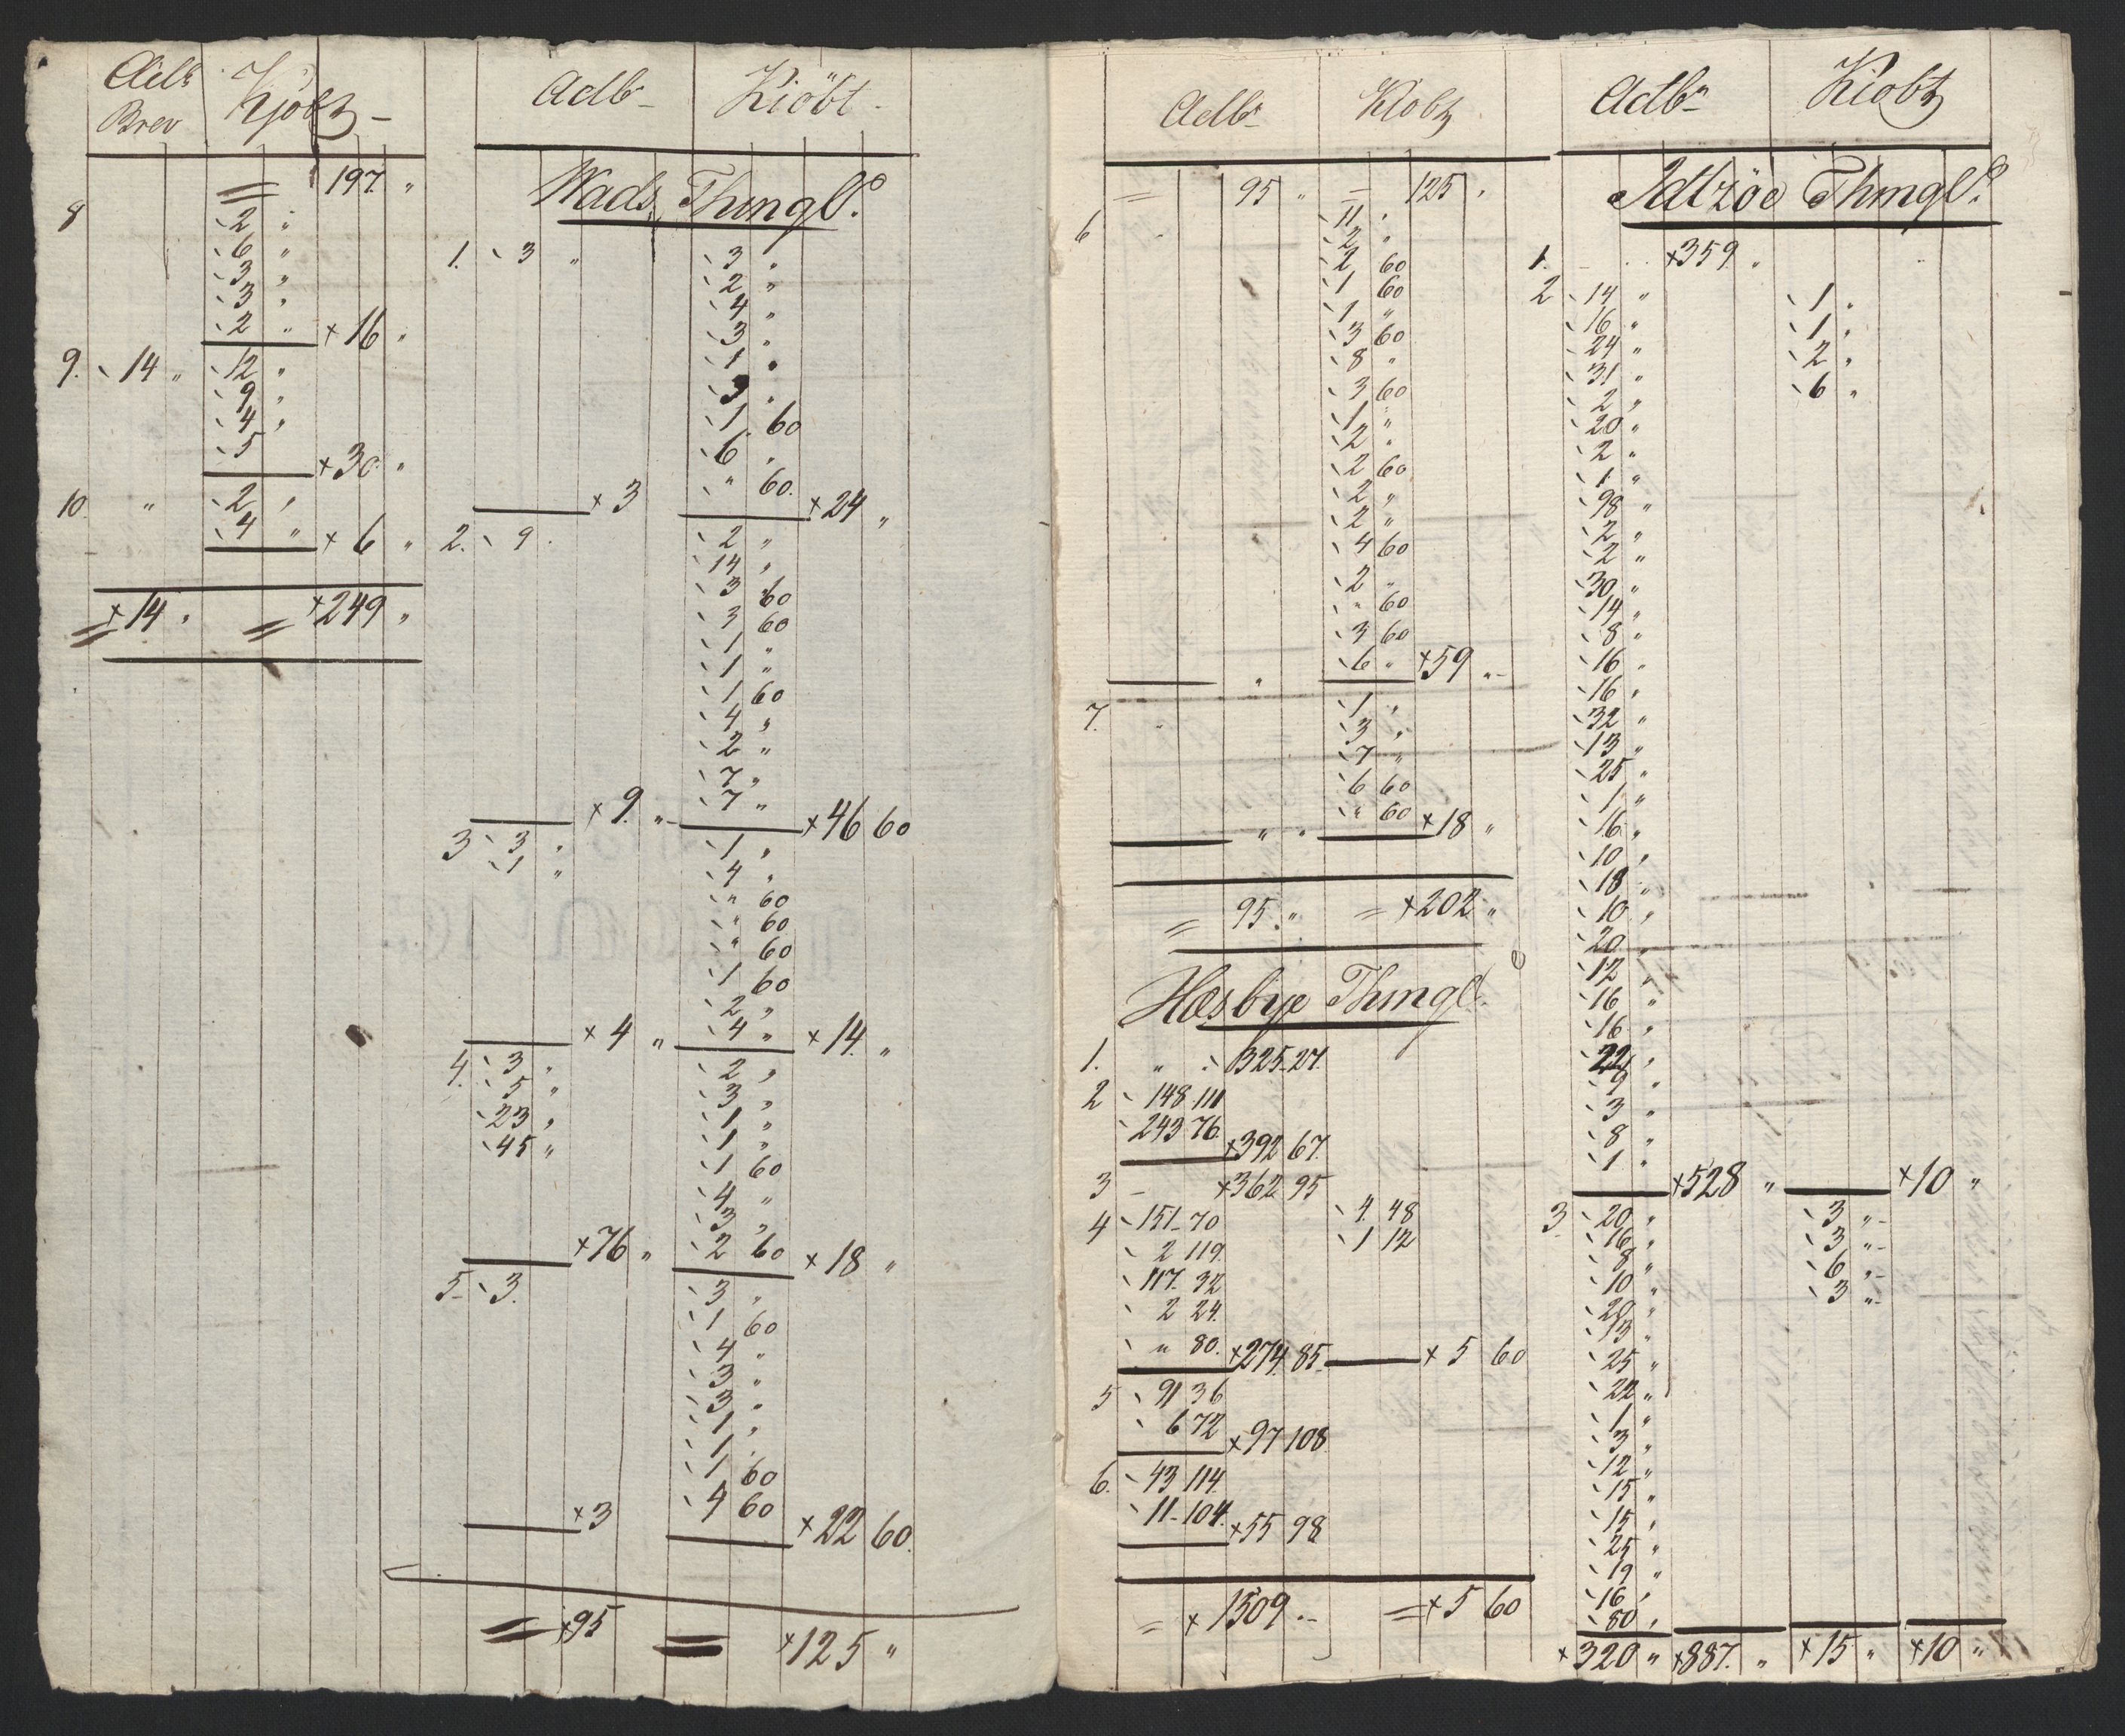 Adb Kjøbt –
Brev
= 197 "
8 2 "
6 "
3 "
3 "
2 " × 16 "
9. 14 " 12 "
9 "
4 "
5 × 30 "
10 " 2 "
4 " × 6 "
= × 14 " = × 249 "
Adb Kiöbt
Wads Thingl.
1. 3 " 3 "
2 "
4 "
3 "
1 "
3 "
1 60
6 "
× 3 " 60. × 24 "
2. 9. 2 "
14 "
3 60
3 60
1 "
1 "
1 60
4 "
2 "
7 "
× 9. " 7 " × 46 60
3 3 " 1 "
1 " 4 "
" 60
" 60
" 60
1 60
2 "
× 4 " 4 " × 14 "
4. 3 " 2 "
5 " 3 "
23 " 1 "
45 " 1 "
1 60
4 "
3 "
× 76 " 2 60 × 18 "
5 3. 3 "
1 60
4 "
3 "
3 "
1 "
1 "
1 60
× 3 4 60 × 22 60.
= × 95 = × 125 "
Adb Kiobt
= 95 " = 125 "
6 11 "
2 "
2 60
1 60
1 "
3 60
8 "
3 60
1 "
2 "
2 60
2 "
2 "
4 60
2 "
" 60
3 60
" 6 " × 59 "
7. 1 "
3 "
7 "
6 60
" " " 60 × 18 "
= 95 " = × 202 "
Hæsbye Thingl.
1. " 325 27.
2 148 111
243 76. × 392 67.
3 – × 362 95
4 151 70 4 48
2 119. 1 12
117. 32
2 24.
" 80. × 274 85 × 5 60
5 91 36
6 72 × 97 108
6. 43 114.
11 104. × 55 98
= × 1509. = × 5 60
Adb Kiobt
Idtzöe Thingl.
1. × 359 "
2 14 " 1 "
16 " 1 "
24 " 2 "
31 " 6 "
2 "
20 "
2 "
1 "
98 "
2 "
2 "
30 "
14 "
8 "
16 "
16 "
32 "
13 "
25 "
1 "
16 "
10 "
18 "
10 "
20 "
12 "
16 "
16 "
22 "
9 "
3 "
8 "
1 " × 528 " × 10 "
3. 20 " 3 "
16 " 3 "
8 " 6 "
10 " 3 "
20 "
13 "
25 "
22 "
1 "
3 "
12 "
15 "
15 "
25 "
19 "
16 "
80 "
× 320 " × 887. " × 15 " × 10 "